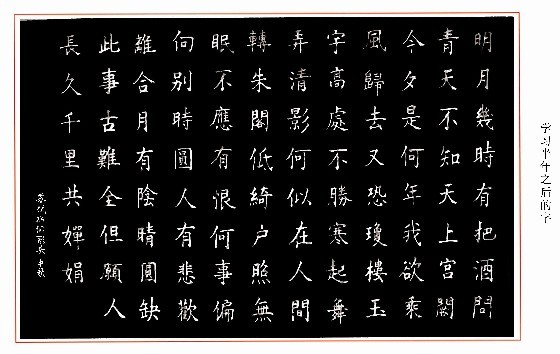 学习半年之后的字
明月幾時有把酒問
青天不知天上宮闕
今夕是何年我欲乘
風歸去又恐瓊樓玉
宇高處不勝寒起舞
弄清影何似在人間
轉朱閣低綺户照無
眠不應有恨何事偏
向別時圓人有悲歡
離合月有陰晴圓缺
此事古難全但願人
長久千里共嬋娟